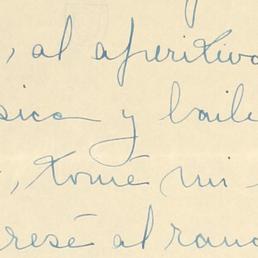 , al aperitivo
sica y baile
, tomé mi
resé al ranc